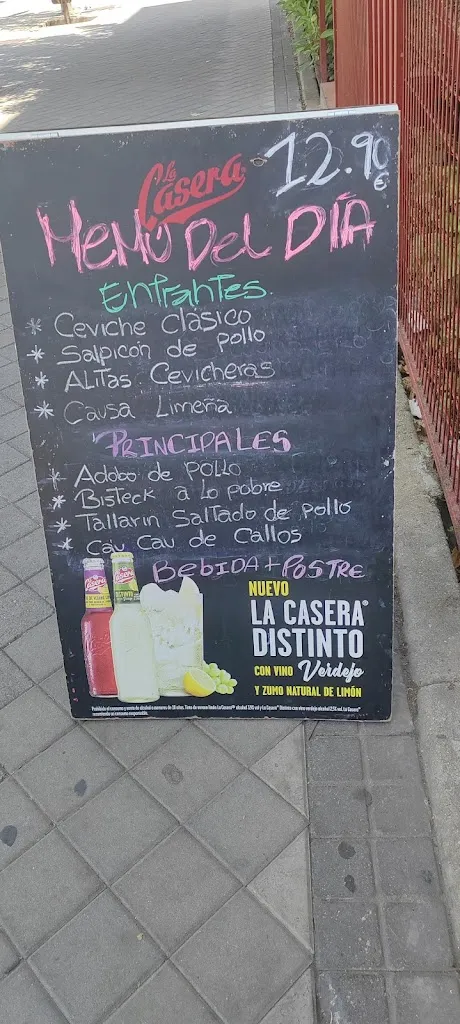 La Casera
12.90 €
MENÚ DEL DÍA
Entrantes.
* Ceviche Clásico
* Salpicón de pollo
* Alitas Cevicheras
* Causa Limeña
PRINCIPALES
* Adobo de Pollo
* Bisteck a lo pobre
* Tallarin Saltado de pollo
* Cau Cau de Callos
BEBIDA + POSTRE
NUEVO
LA CASERA®
DISTINTO
CON VINO Verdejo
Y ZUMO NATURAL DE LIMÓN